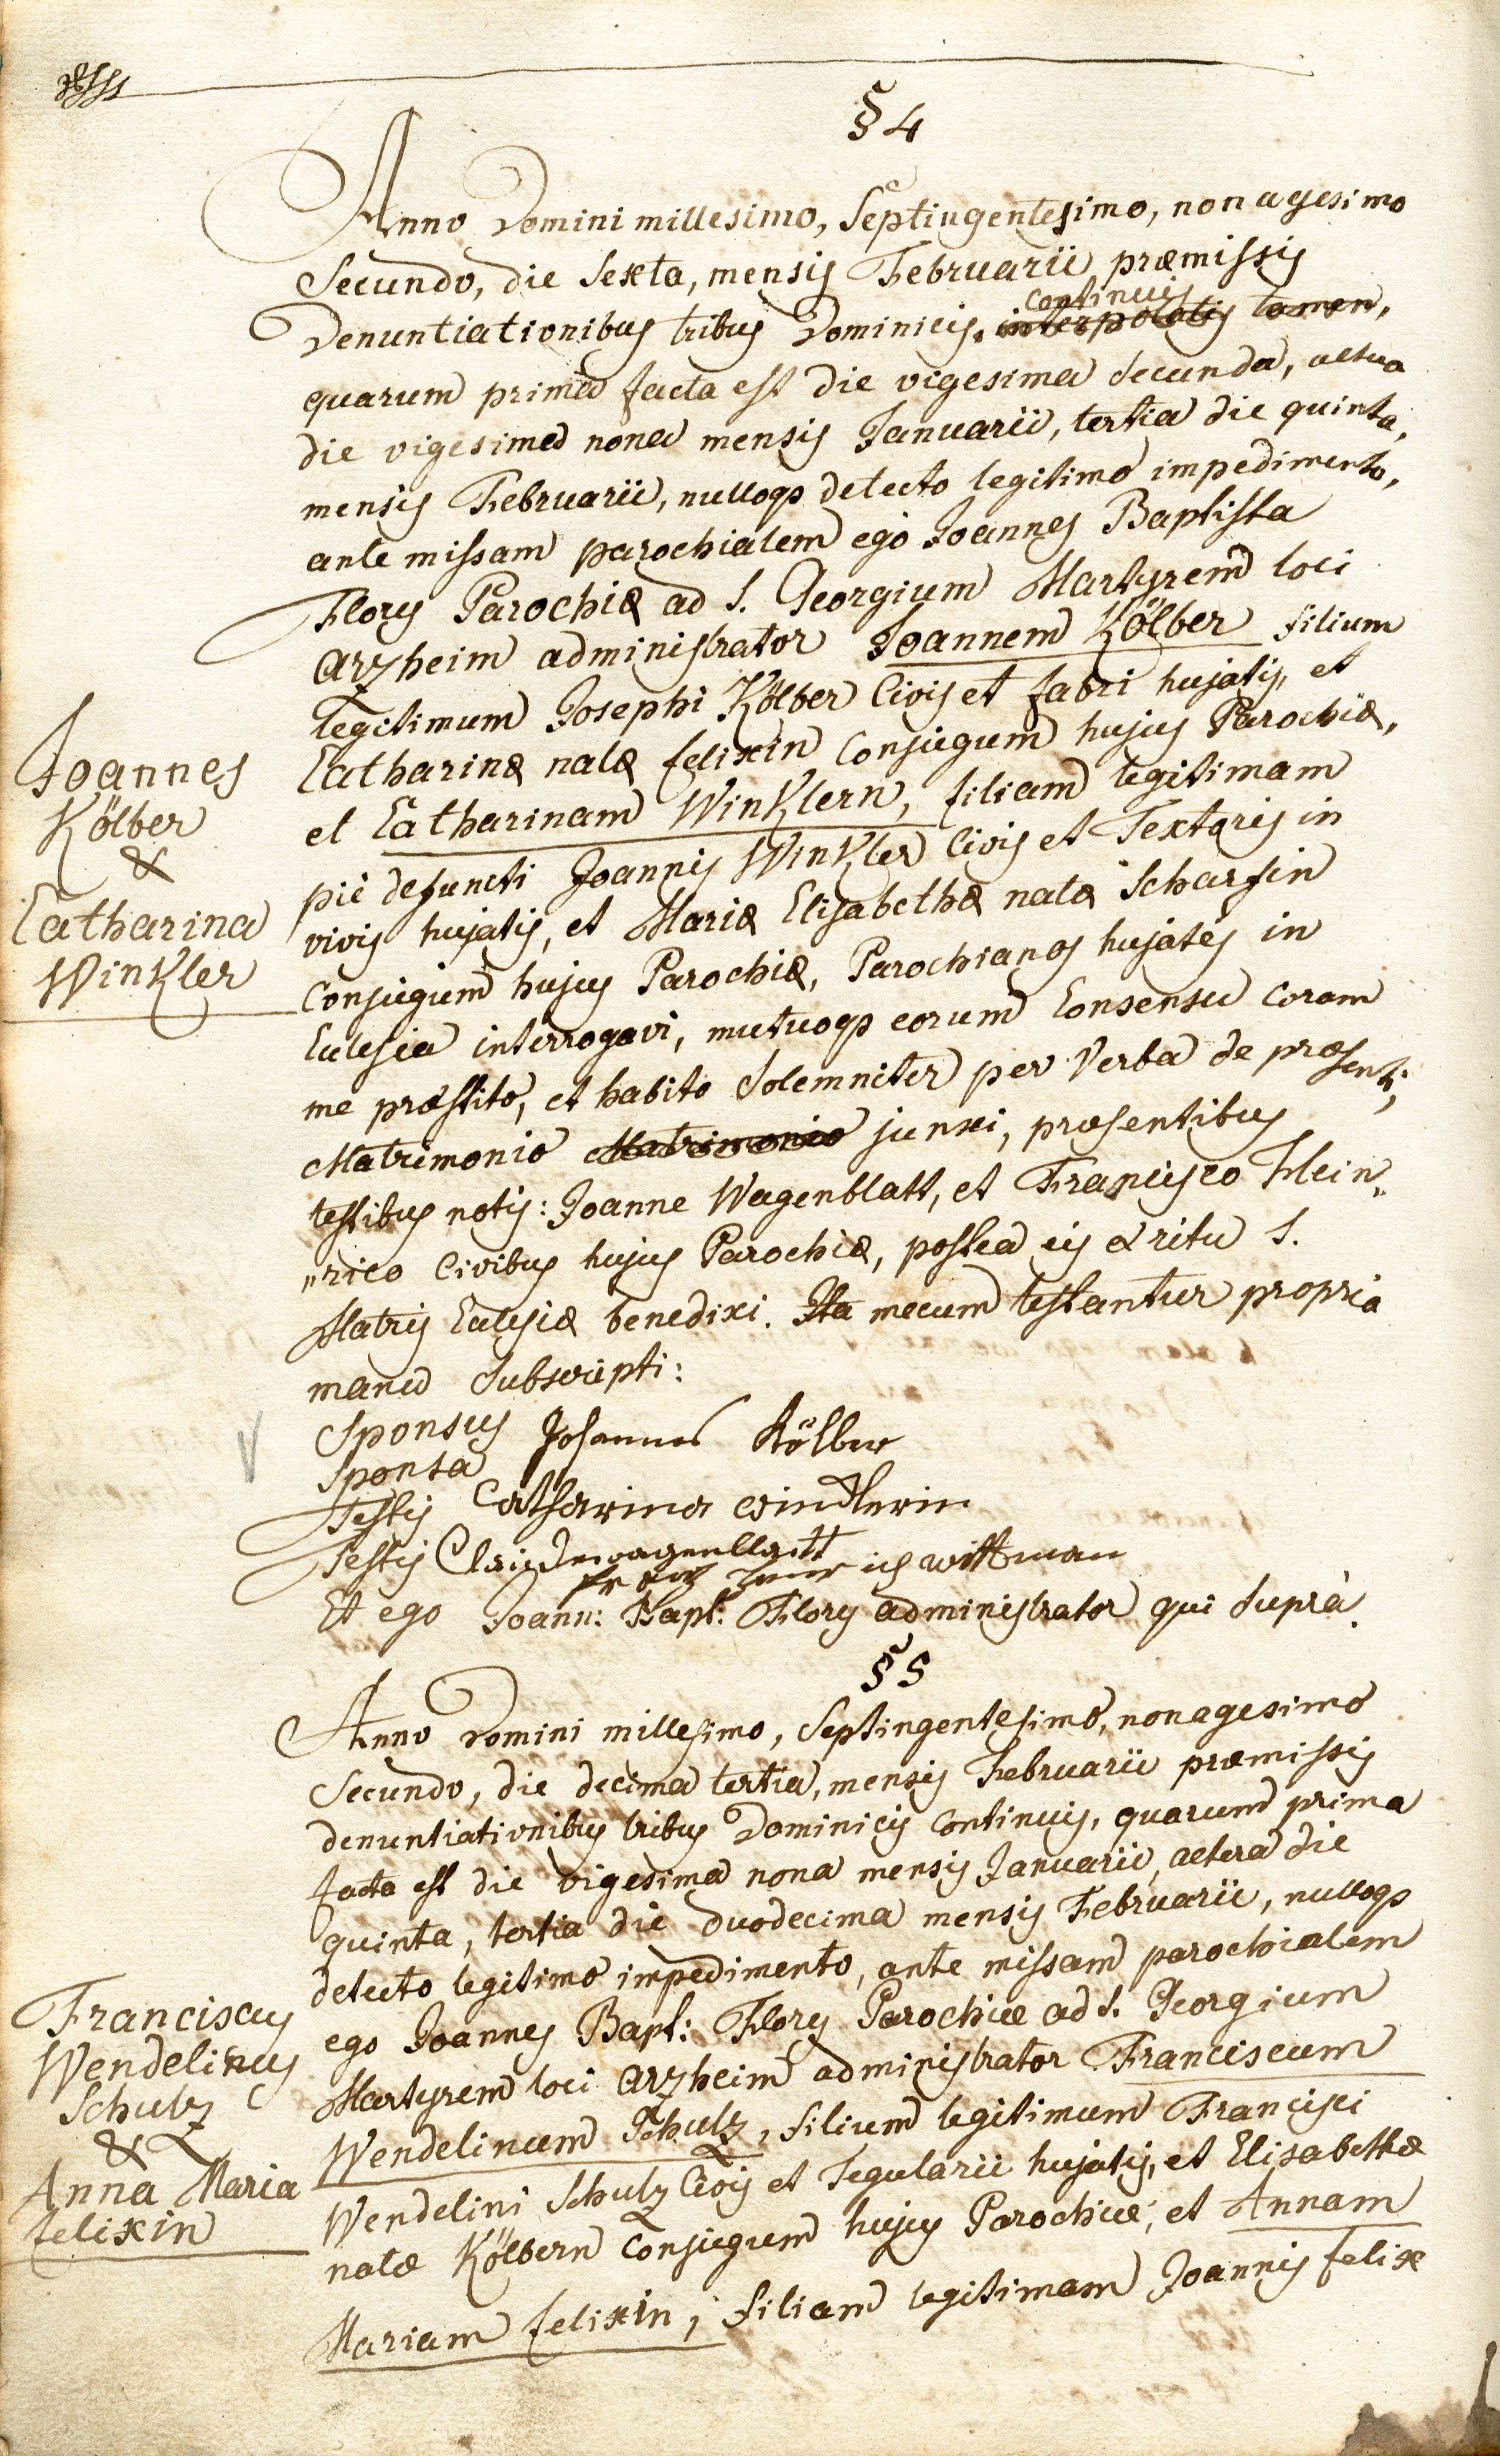 § 4
Anno Domini millesimo, Septingentesimo, nonagesimo
Secundo, die Sexta, mensis Februarii præmissis
continuis
Denuntiationibus tribus Dominicis, interpolatis tamen,
quarum prima facta est die vigesima secunda, altera
die vigesima nona mensis Januarii, tertia die quinta,
mensis Februarii, nulloqꝫ detecto legitimo impedimento,
ante missam parochialem ego Joannes Baptista
Flory Parochiæ ad S. Georgium Martyrem loci
Arzheim administrator Joannem Kölber filium
legitimum Josephi Kölber Civis et fabri hujatis, et
Catharinæ natæ felixin Conjugum hujus Parochiæ,
et Catharinam Winklern, filiam legitimam
pie defuncti Joannis Winkler Civis et Textoris in
vivis hujatis, et Mariæ Elisabethæ natæ Scharfin
Conjugum hujus Parochiæ, Parochianos hujates in
Joannes
Kölber
&
Catharina
Winkler
Eclesia interrogavi, mutuoqꝫ eorum Consensu coram
me præstito, et habito Solemniter per Verba de præsenti,
Matrimonio Matrimonio junxi, præsentibus
testibus notis: Joanne Wagenblatt, et Francisco Hein„
„rico Civibus hujus Parochiæ, postea iis ex ritu S.
Matris Eclesiæ benedixi. Ita mecum testantur propria
manu Subscripti:
Sponsus Johannes Kölber
Sponsa
Testis Catharina Windlerin
Testis
Et ego Joann: Bapt: Flory administrator qui Suprà.
§ 5
Anno Domini millesimo, Septingentesimo, nonagesimo
Secundo, die decima tertia, mensis Februarii præmissis
denuntiationibus tribus Dominicis Continuis, quarum prima
facta est die vigesima nona mensis Januarii, altera die
quinta, tertia die duodecima mensis Februarii, nulloqꝫ
detecto legitimo impedimento, ante missam parochialem
ego Joannes Bapt: Flory Parochiæ ad S. Georgium
Martyrem loci Arzheim administrator Franciscum
Wendelinum Schulz, filium legitimum Francisci
Wendelini Schulz Civis et Tegularii hujatis, et Elisabethæ
natæ Kölbern Conjugum hujus Parochiæ, et Annam
Mariam felixin, filiam legitimam Joannis felix
Franciscus
Wendelinus
Schulz
&
Anna Maria
felixin